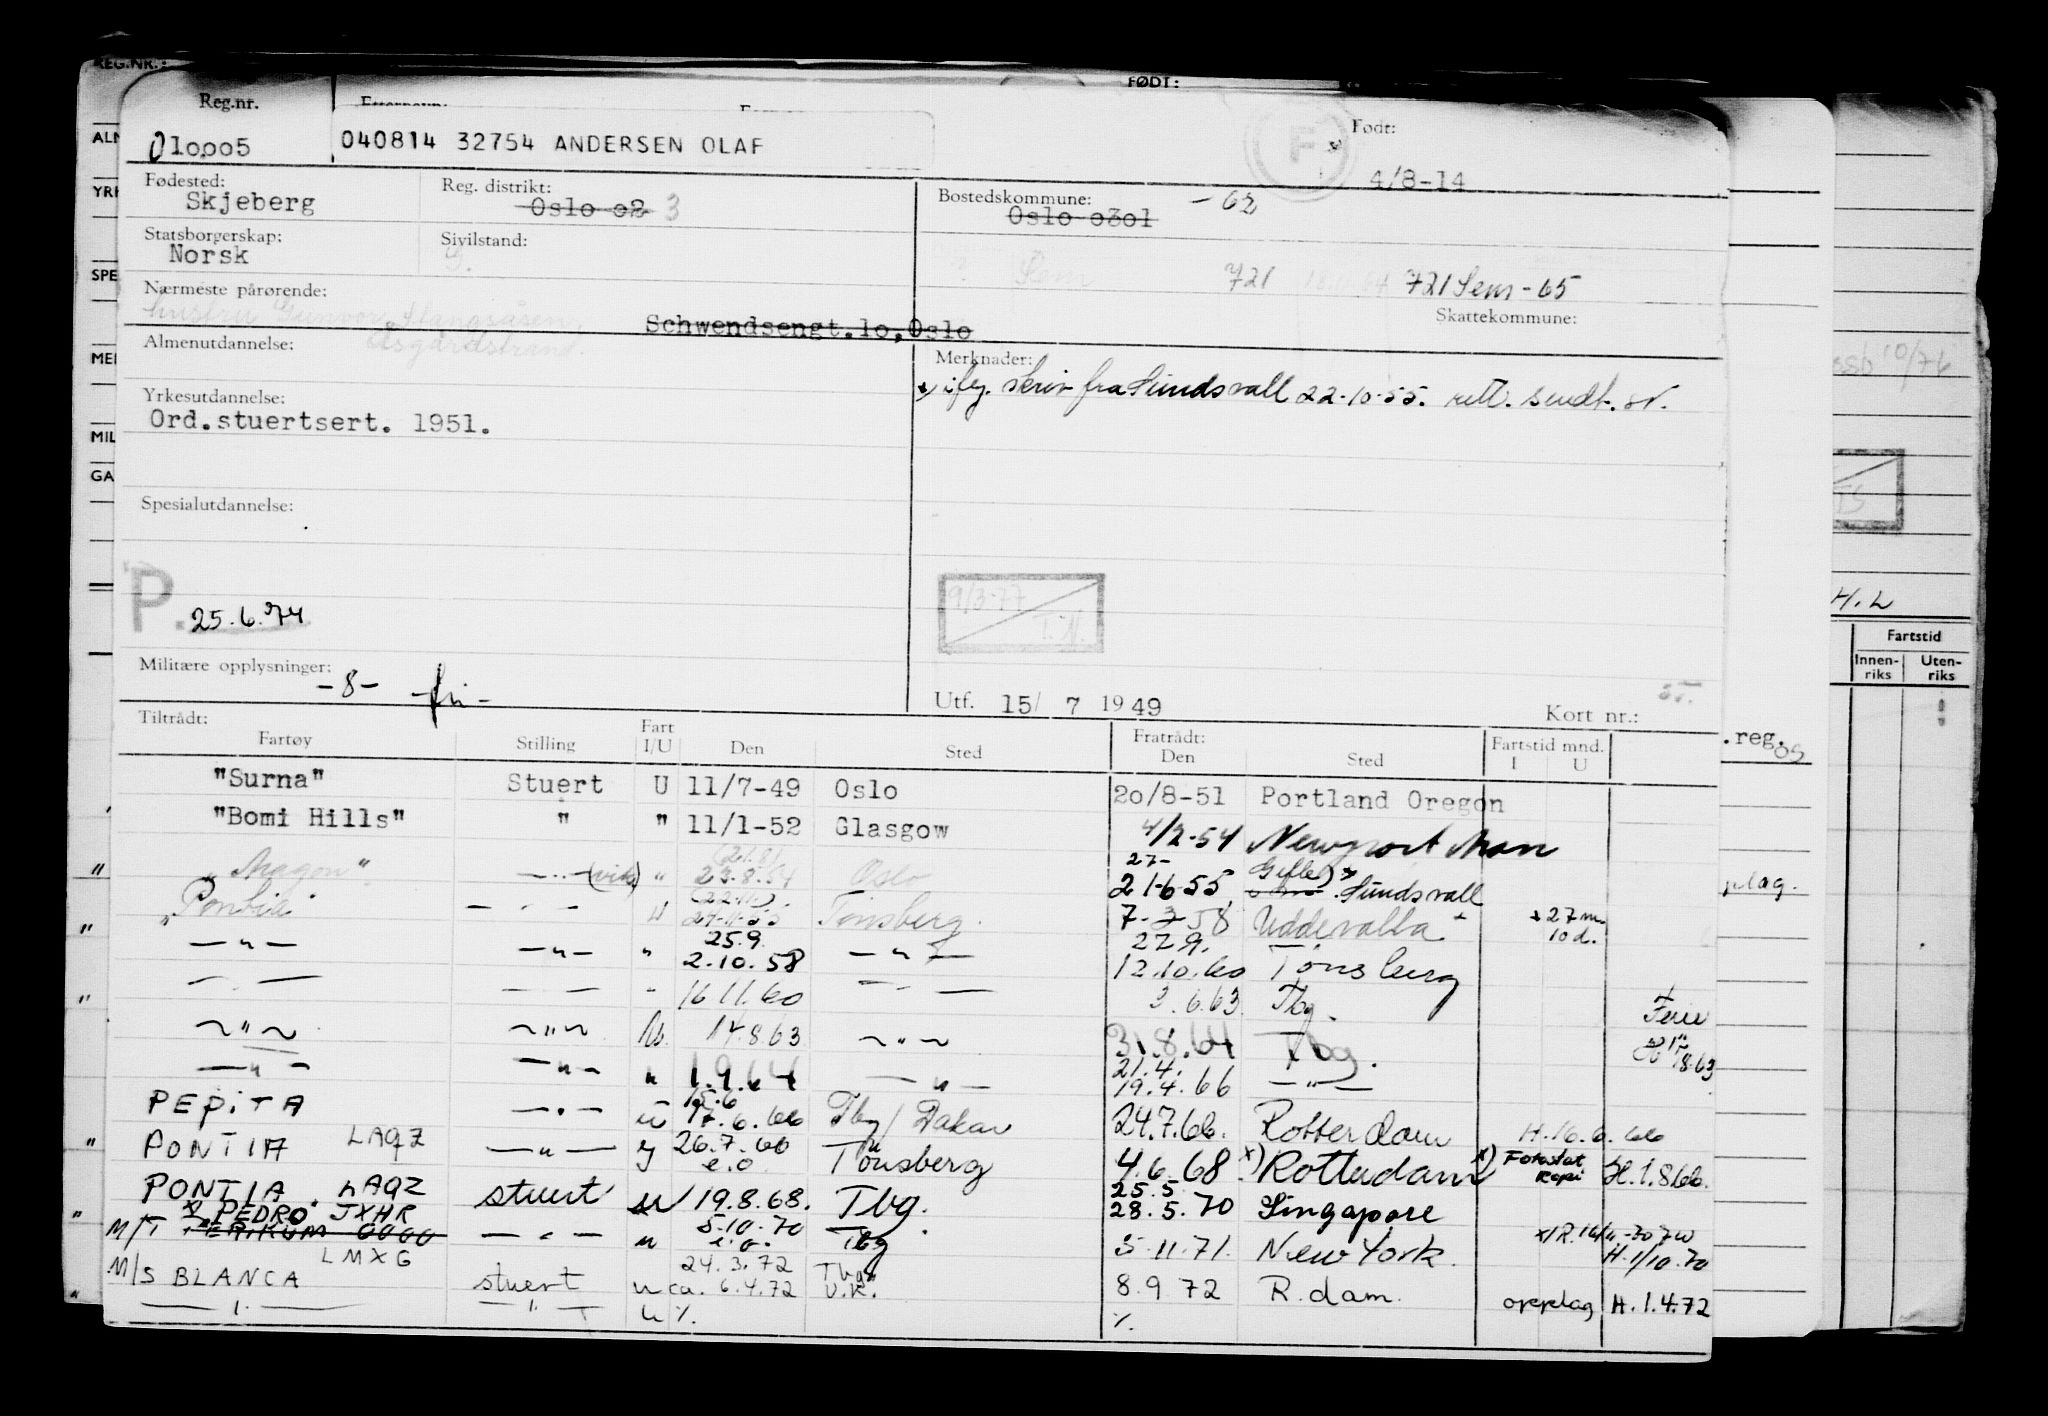 REG.NR.:
FØDT:
Reg.nr.
Født:
010005
040814 32754 ANDERSEN OLAF
F
4/8-14
Fødested:
Skjeberg
Reg. distrikt:
Oslo 02 3
Bostedskommune:
Oslo 0301
-62
Statsborgerskap:
Norsk
Sivilstand:
G.
Sem 721 721 Sem - 65
Skattekommune:
Nærmeste pårørende:
hustru Gunvor
Åsgårdstrand.
Schwendsengt.10,Oslo
Almenutdannelse:
Merknader:
flg. skriv fra Sundsvall 22-10-55. rett. sendt.
Yrkesutdannelse:
Ord.stuertsert. 1951.
Spesialutdannelse:
P.
25.6.74
9/3-77
T.N.
Militære opplysninger:
-8- -fri-
Utf. 15/ 7 1949
Kort nr.:
Tiltrådt:
Fratrådt:
Fartøy Stilling Fart I/U Den Sted Den Sted Fartstid mnd. I U
"Surna" Stuert U 11/7-49 Oslo 20/8-51 Portland Oregon
"Bomi Hills" " " 11/1-52 Glasgow 4/2-54 Newport
"Aragon" -"- " 23.8.54 Oslo 27- 21-6-55 Gefle Sundsvall
"Pontia" -"- U (22.11.) Tønsberg. 7-3-58 Uddevalla 27 m. 10 d.
-"- -"- " 25.9. 2.10.58 -"- 27.9. 12.10.60 Tønsberg
-"- -"- " 16.11.60 -"- 3.6.63 Tbg.
Ferie
-"- -"- 14.8.63 -"- 31.8.64 Tbg.
8.63
-"- -"- " 1.9.64 -"- 21.4. 19.4.66 -"-
PEPITA -"- u 15.6 17.6.66 Tbg/Dakar 24.7.66. Rotterdam H.16.6.66
PONTIA LAQZ -"- 26.7.66 e.o. Tönsberg 4.6.68 x) Rotterdam x) Fotostat kopi H.1.8.66.
PONTIA LAQZ stuert u 19.8.68. Tbg. 25.5 28.5.70 Singapore
x) PEDRO JXHR
M/T -"- u 5.10.70 e.o. Tbg 5.11.71. New York. H.1/10.70
LMXG
M/S BLANCA stuert u 24.3.72 ca. 6.4.72 Tbg. U.K. 8.9.72 R.dam. opplag H.1.4.72
-"- -"- u %. %.
ssb 10/76
TS
H.L
Fartstid
Innen-riks Uten-riks
.reg.
05
plag.
ALM
YRK
SPE
MER
MIL
GA